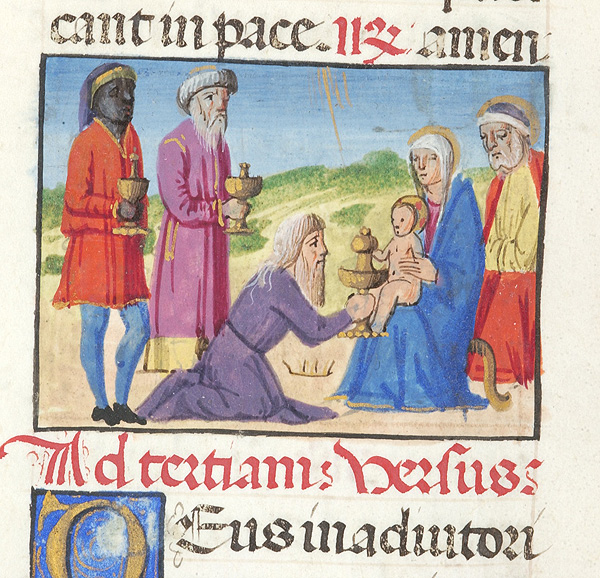 cant in pace. ℟ amen
Ad tertiam Versus
DEus in adiutori